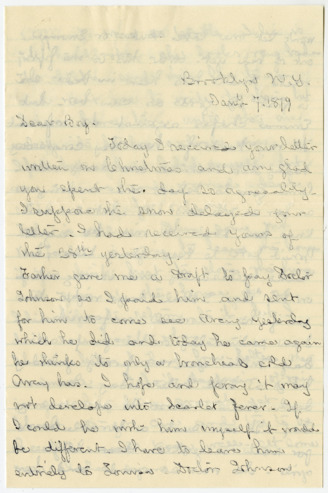 Brooklyn N.Y.
Jan'y 7. 1879
Dear Boy.
Today I received your letter
written on Christmas and am glad
you spent the day so agreeably.
I suppose the snow delayed your
letter. I had received yours of
the 28th yesterday.
Father gave me a Draft to pay Doctor
Johnson so I paid him and sent
for him to come see Arcy yesterday
which he did and today he came again
he thinks its only a bronchial cold
Arcy has. I hope and pray it may
not develope into Scarlet fever. If
I could be with him myself it would
be different. I have to leave him
entirely to Doctor Johnson